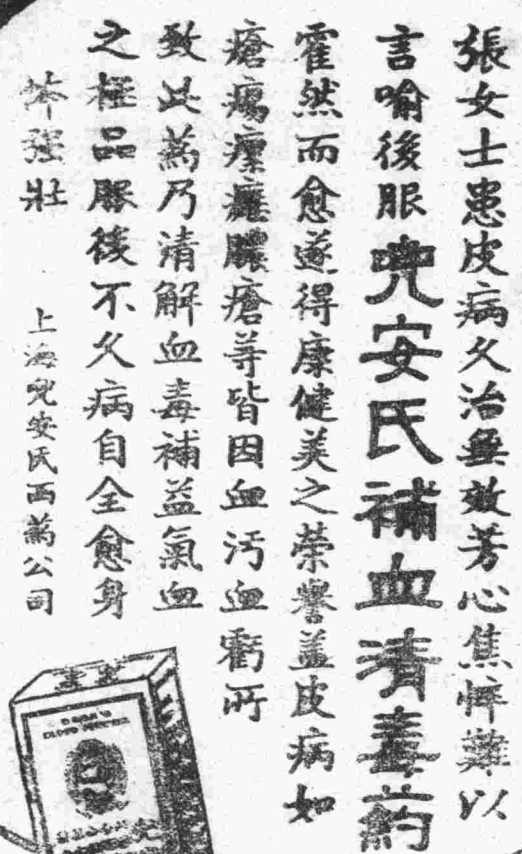 張女士患皮病久治無效芳心焦悴難以
言喻後服兜安氏補血清毒葯
霍然而愈遂得康健美之榮譽蓋皮病如
瘡瘍瘰癧膿瘡等皆因血污血虧所
致此藥乃清解血毒補益氣血
之極品服後不久病自全愈身
體強壯
上海兜安氏西藥公司